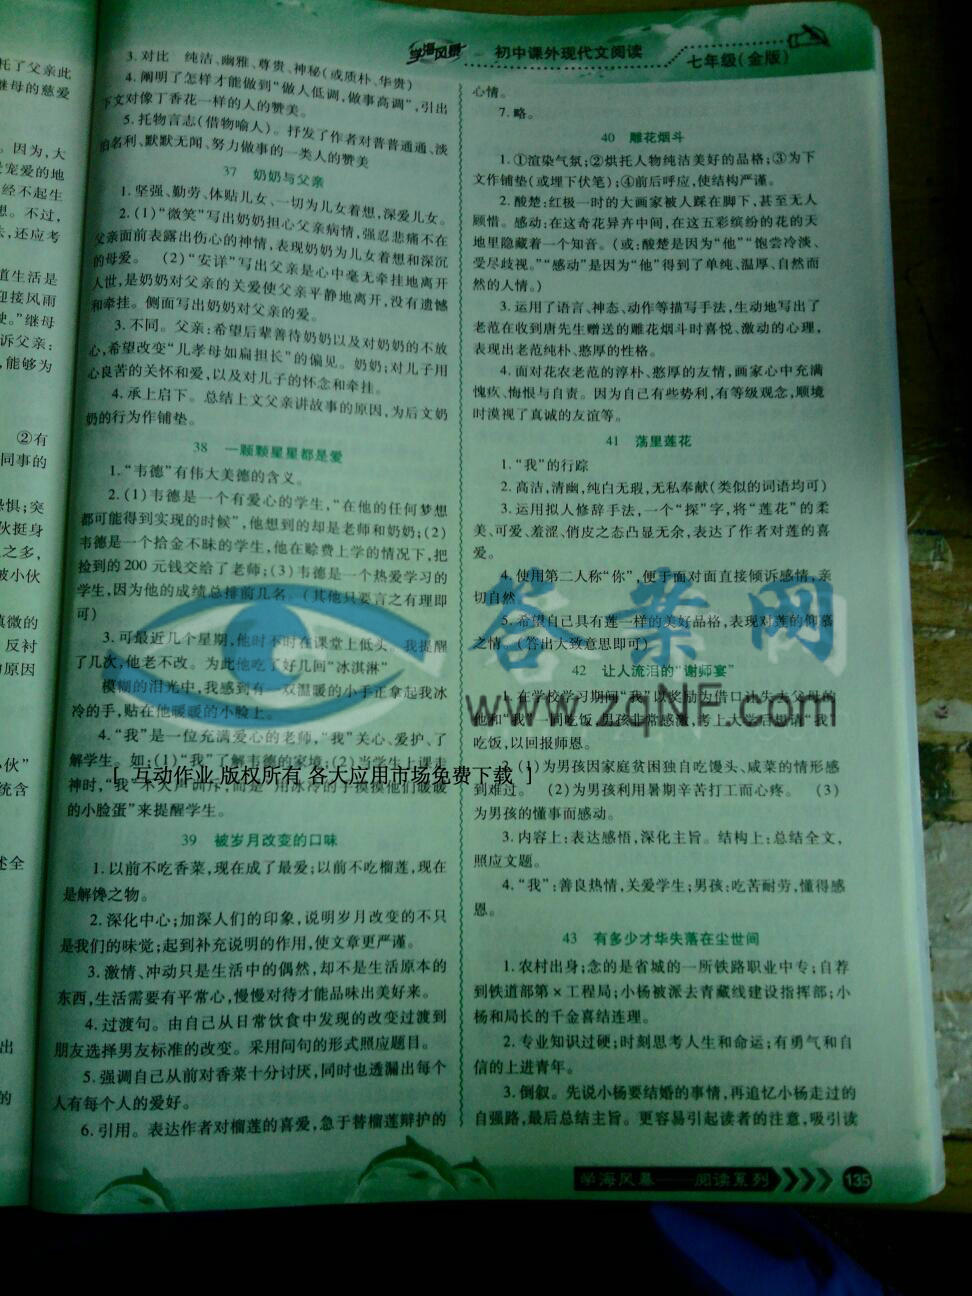 学海风暴 初中课外现代文阅读
七年级(金版)
托了父亲此
继母的慈爱
。因为,大
受宠爱的地
经不起生
想。不过,
去,还应考
道生活是
迎接风雨
使。”继母
诉父亲:
,能够为
②有
同事的
恐惧;突
伙挺身
之多,
被小伙
真微的
反衬
的原因
伙”
统含
述全
出
的
3. 对比 纯洁、幽雅、尊贵、神秘(或质朴、华贵)
4. 阐明了怎样才能做到“做人低调,做事高调”,引出
下文对像丁香花一样的人的赞美。
5. 托物言志(借物喻人)。抒发了作者对普普通通、淡
泊名利、默默无闻、努力做事的一类人的赞美
37 奶奶与父亲
1. 坚强、勤劳、体贴儿女、一切为儿女着想,深爱儿女。
2. (1)“微笑”写出奶奶担心父亲病情,强忍悲痛不在
父亲面前表露出伤心的神情,表现奶奶为儿女着想和深沉
的母爱。 (2)“安详”写出父亲是心中毫无牵挂地离开
人世,是奶奶对父亲的关爱使父亲平静地离开,没有遗憾
和牵挂。侧面写出奶奶对父亲的爱。
3. 不同。父亲:希望后辈善待奶奶以及对奶奶的不放
心,希望改变“儿孝母如扁担长”的偏见。奶奶:对儿子用
心良苦的关怀和爱,以及对儿子的怀念和牵挂。
4. 承上启下。总结上文父亲讲故事的原因,为后文奶
奶的行为作铺垫。
38 一颗颗星星都是爱
1. “韦德”有伟大美德的含义。
2. (1)韦德是一个有爱心的学生,“在他的任何梦想
都可能得到实现的时候”,他想到的却是老师和奶奶;(2)
韦德是一个拾金不昧的学生,他在赊费上学的情况下,把
捡到的200元钱交给了老师;(3)韦德是一个热爱学习的
学生,因为他的成绩总排前几名。(其他只要言之有理即
可)
3. 可最近几个星期,他时不时在课堂上低头。我提醒
了几次,他老不改。为此他吃了好几回“冰淇淋”
模糊的泪光中,我感到有一双温暖的小手正拿起我冰
冷的手,贴在他暖暖的小脸上。
4. “我”是一位充满爱心的老师,“我”关心、爱护、了
解学生。如:(1)“我”了解韦德的家境;(2)当学生上课走
神时,“我”不大声训斥,而是“用冰冷的手摸摸他们暖暖
的小脸蛋”来提醒学生。
39 被岁月改变的口味
1. 以前不吃香菜,现在成了最爱;以前不吃榴莲,现在
是解馋之物。
2. 深化中心;加深人们的印象,说明岁月改变的不只
是我们的味觉;起到补充说明的作用,使文章更严谨。
3. 激情、冲动只是生活中的偶然,却不是生活原本的
东西,生活需要有平常心,慢慢对待才能品味出美好来。
4. 过渡句。由自己从日常饮食中发现的改变过渡到
朋友选择男友标准的改变。采用问句的形式照应题目。
5. 强调自己从前对香菜十分讨厌,同时也透漏出每个
人有每个人的爱好。
6. 引用。表达作者对榴莲的喜爱,急于替榴莲辩护的
心情。
7. 略。
40 雕花烟斗
1. ①渲染气氛;②烘托人物纯洁美好的品格;③为下
文作铺垫(或埋下伏笔);④前后呼应,使结构严谨。
2. 酸楚:红极一时的大画家被人踩在脚下,甚至无人
顾惜。感动:在这奇花异卉中间,在这五彩缤纷的花的天
地里隐藏着一个知音。(或:酸楚是因为“他”“饱尝冷淡、
受尽歧视。”“感动”是因为“他”得到了单纯、温厚、自然而
然的人情。)
3. 运用了语言、神态、动作等描写手法,生动地写出了
老范在收到唐先生赠送的雕花烟斗时喜悦、激动的心理,
表现出老范纯朴、憨厚的性格。
4. 面对花农老范的淳朴、憨厚的友情,画家心中充满
愧疚、悔恨与自责。因为自己有些势利,有等级观念,顺境
时漠视了真诚的友谊等。
41 荡里莲花
1. “我”的行踪
2. 高洁,清幽,纯白无瑕,无私奉献(类似的词语均可)
3. 运用拟人修辞手法,一个“探”字,将“莲花”的柔
美、可爱、羞涩、俏皮之态凸显无余,表达了作者对莲的喜
爱。
4. 使用第二人称“你”,便于面对面直接倾诉感情,亲
切自然。
5. 希望自己具有莲一样的美好品格,表现对莲的仰慕
之情。(答出大致意思即可)
42 让人流泪的“谢师宴”
1. 在学校学习期间“我”以奖励为借口让失去父母的
他和“我”一同吃饭,男孩非常感激,考上大学后想请“我”
吃饭,以回报师恩。
2. (1)为男孩因家庭贫困独自吃馒头、咸菜的情形感
到难过。 (2)为男孩利用暑期辛苦打工而心疼。 (3)
为男孩的懂事而感动。
3. 内容上:表达感悟,深化主旨。结构上:总结全文,
照应文题。
4. “我”:善良热情,关爱学生;男孩:吃苦耐劳,懂得感
恩。
43 有多少才华失落在尘世间
1. 农村出身;念的是省城的一所铁路职业中专;自荐
到铁道部第×工程局;小杨被派去青藏线建设指挥部;小
杨和局长的千金喜结连理。
2. 专业知识过硬;时刻思考人生和命运;有勇气和自
信的上进青年。
3. 倒叙。先说小杨要结婚的事情,再追忆小杨走过的
自强路,最后总结主旨。更容易引起读者的注意,吸引读
答案网
www.zqNF.com
[ 互动作业 版权所有 各大应用市场免费下载 ]
学海风暴——阅读系列 135